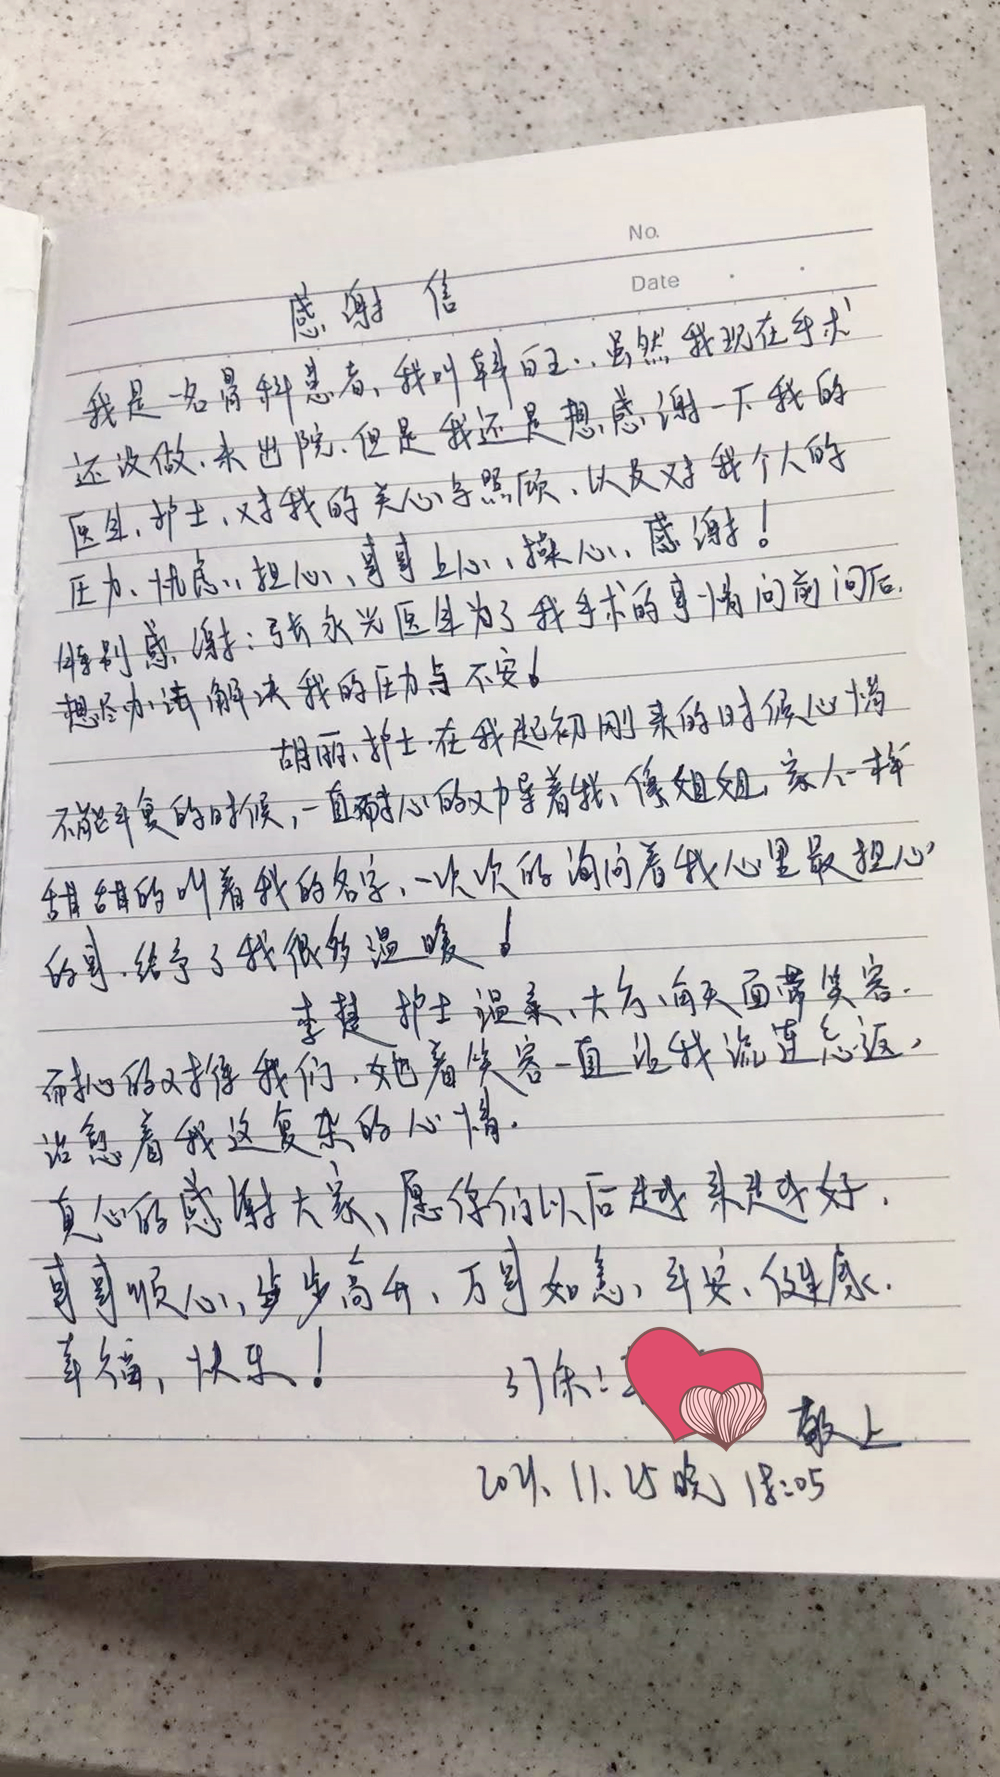 No.
Date
感谢信
我是一名骨科患者、我叫韩白玉..虽然我现在手术
还没做、未出院、但是我还是想感谢一下我的
医生、护士、对我的关心与照顾、以及对我个人的
压力、忧虑、担心、事事上心、操心、感谢!
特别感谢:张永兴医生为了我手术的事情问前问后.
想尽办法解决我的压力与不安!
胡丽护士.在我起初刚来的时候心情
不能平复的时候,一直耐心的教导着我、像姐姐、家人一样
甜甜的叫着我的名字、一次次的询问着我心里最担心
的事.给予了我很多温暖!
李楚护士温柔、大方、每天面带笑容.
耐心的对待我们、她着笑容一直让我流连忘返,
治愈着我这复杂的心情.
真心的感谢大家、愿你们以后越来越好.
事事顺心、步步高升、万事如意、平安、健康.
幸福、快乐!
3门床:
敬上
2021.11.25晚 18:05